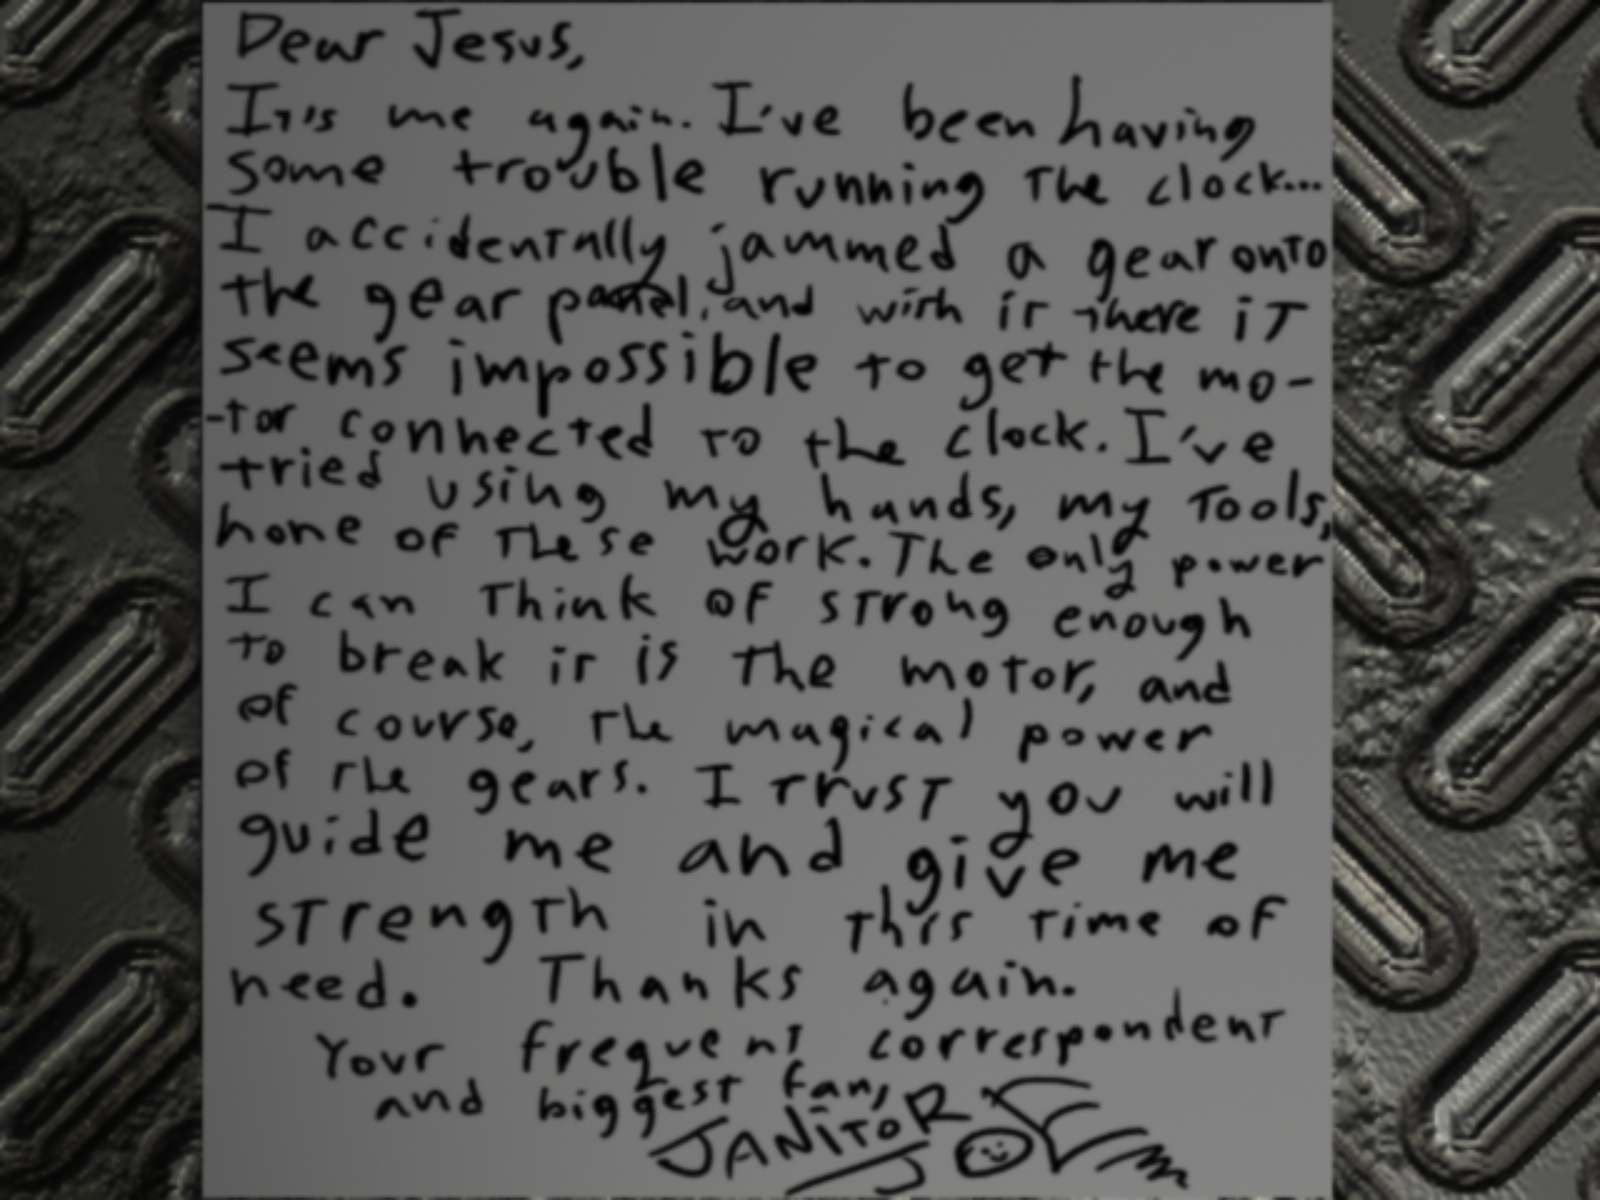 Dear Jesus,
It's me again. I've been having
some trouble running the clock...
I accidentally jammed a gear onto
the gear panel, and with it there it
seems impossible to get the mo-
-tor connected to the clock. I've
tried using my hands, my tools,
none of these work. The only power
I can think of strong enough
to break it is the motor, and
of course, the magical power
of the gears. I trust you will
guide me and give me
strength in this time of
need. Thanks again.
Your frequent correspondent
and biggest fan,
JANITOR